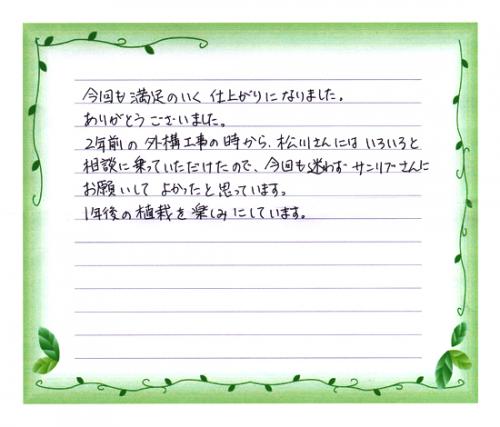 今回も満足のいく仕上がりになりました。
ありがとうございました。
2年前の外構工事の時から、松川さんにはいろいろと
相談に乗っていただけたので、今回も迷わずサンリブさんに
お願いしてよかったと思っています。
1年後の植栽を楽しみにしています。